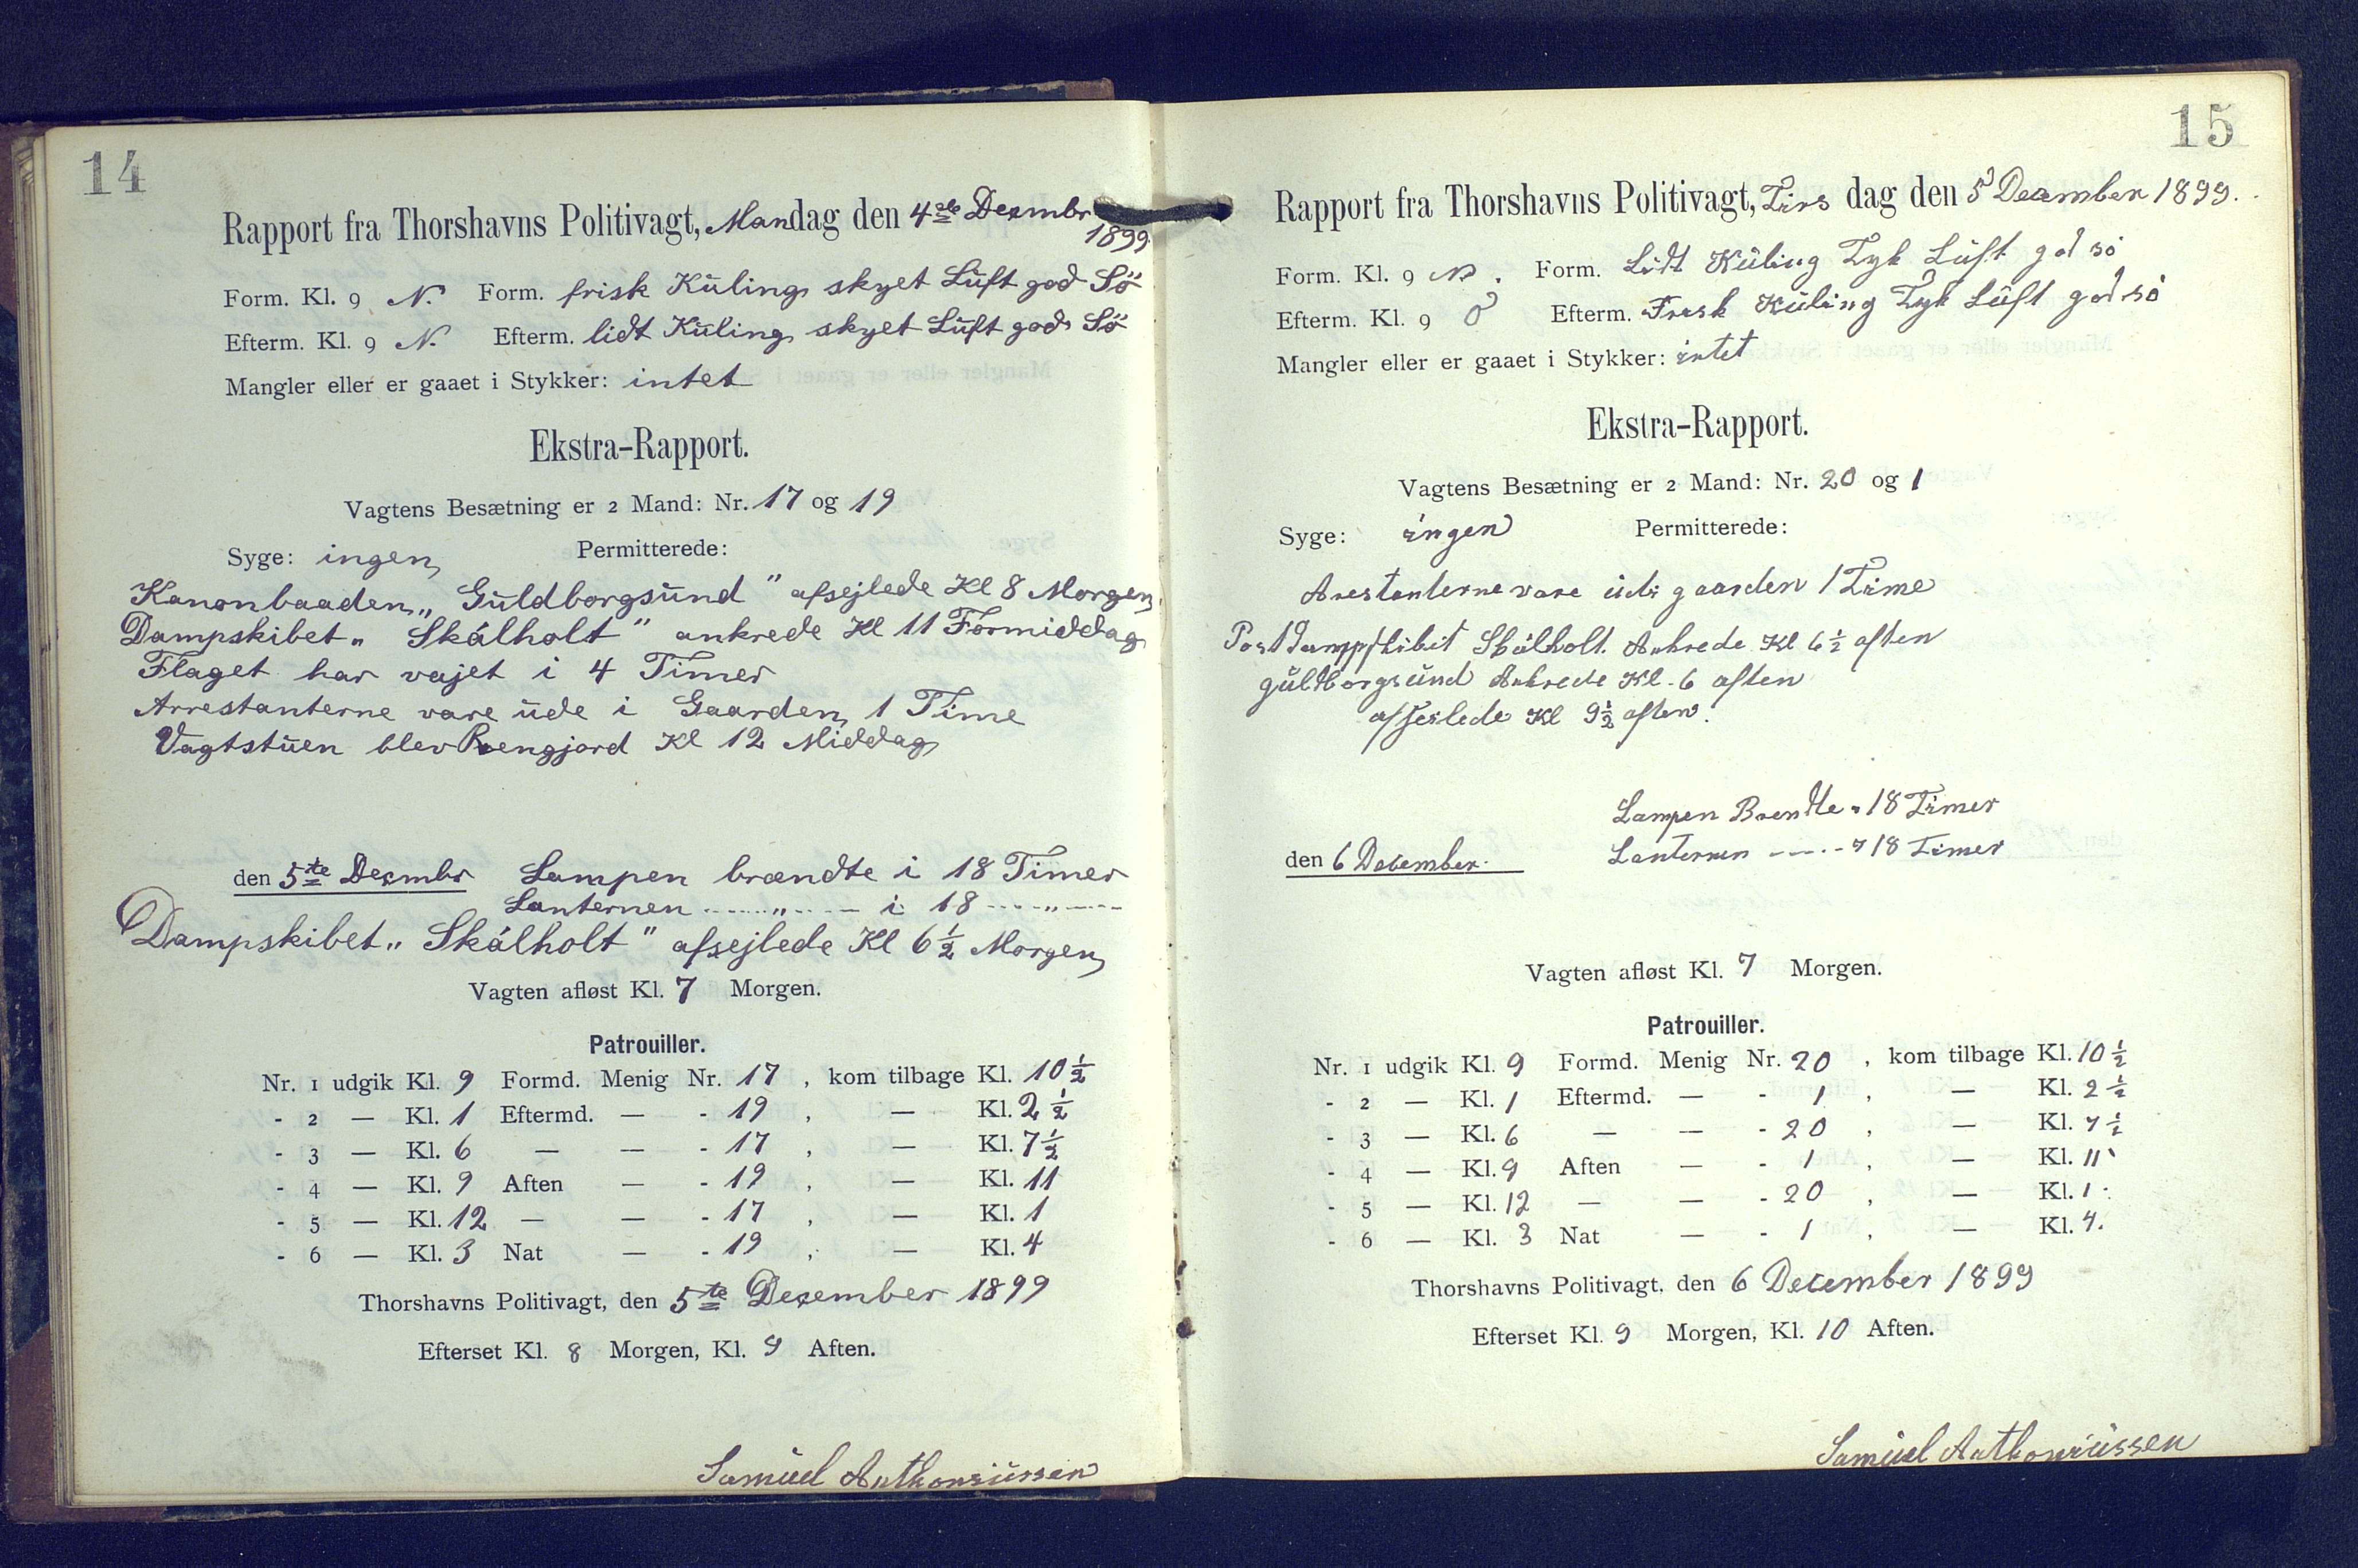 14
Rapport fra Thorshavns Politivagt, Mandag den 4de Dezmbr
1899.
Form. Kl. 9 N. Form. frisk Küling skyet Lüft god Sö
Efterm. Kl. 9 N. Efterm. lidt Küling skyet Lüft god Sö
Mangler eller er gaaet i Stykker: intet
Ekstra-Rapport.
Vagtens Besætning er 2 Mand: Nr. 17 og 19
Syge: ingen Permitterede:
Kanonbaaden „Güldborgsünd" afsejlede Kl 8 Morgen
Dampskibet „Skálholt" ankrede Kl 11 Formiddag
Flaget har vajet i 4 Timer
Arrestanterne vare üde i Gaarden 1 Time
Vagtstüen blev Rengjord Kl 12 Middag
den 5te Dezmbr Lampen brændte i 18 Timer
Lanternen ---- „ ---- i 18 ---- „ ----
Dampskibet „Skálholt" afsejlede Kl 6½ Morgen
Vagten afløst Kl. 7 Morgen.
Patrouiller.
Nr. 1 udgik Kl. 9 Formd. Menig Nr. 17 , kom tilbage Kl. 10½
- 2 — Kl. 1 Eftermd. — - 19 , — Kl. 2½
- 3 — Kl. 6 — — - 17 , — Kl. 7½
- 4 — Kl. 9 Aften — - 19 , — Kl. 11
- 5 — Kl. 12 — — - 17 , — Kl. 1
- 6 — Kl. 3 Nat — - 19 , — Kl. 4
Thorshavns Politivagt, den 5te Dezember 1899
Efterset Kl. 8 Morgen, Kl. 9 Aften.
Samüel Anthoniüssen
15
Rapport fra Thorshavns Politivagt, Tirs dag den 5 December 1899.
Form. Kl. 9 Form. Lidt Küling Tyk Lüft god sö
Efterm. Kl. 9 O Efterm. Frisk Küling Tyk Lüft god sö
Mangler eller er gaaet i Stykker: intet
Ekstra-Rapport.
Vagtens Besætning er 2 Mand: Nr. 20 og 1
Syge: ingen Permitterede:
Arestanterne vare üdi gaarden 1 Time
Postdampskibit Skálholt Ankrede Kl 6½ aften
güldborgsünd Ankrede Kl. 6 aften
afseslede Kl 9½ aften.
Lampen Brendte „ 18 Timer
den 6 December. Lanternen ---- „ 18 Timer
Vagten afløst Kl. 7 Morgen.
Patrouiller.
Nr. 1 udgik Kl. 9 Formd. Menig Nr. 20 , kom tilbage Kl. 10½
- 2 — Kl. 1 Eftermd. — - 1 , — Kl. 2½
- 3 — Kl. 6 — — - 20 , — Kl. 7½
- 4 — Kl. 9 Aften — - 1 , — Kl. 11
- 5 — Kl. 12 — — - 20 , — Kl. 1
- 6 — Kl. 3 Nat — - 1 , — Kl. 4.
Thorshavns Politivagt, den 6 December 1899
Efterset Kl. 9 Morgen, Kl. 10 Aften.
Samüel Anthoniüssen